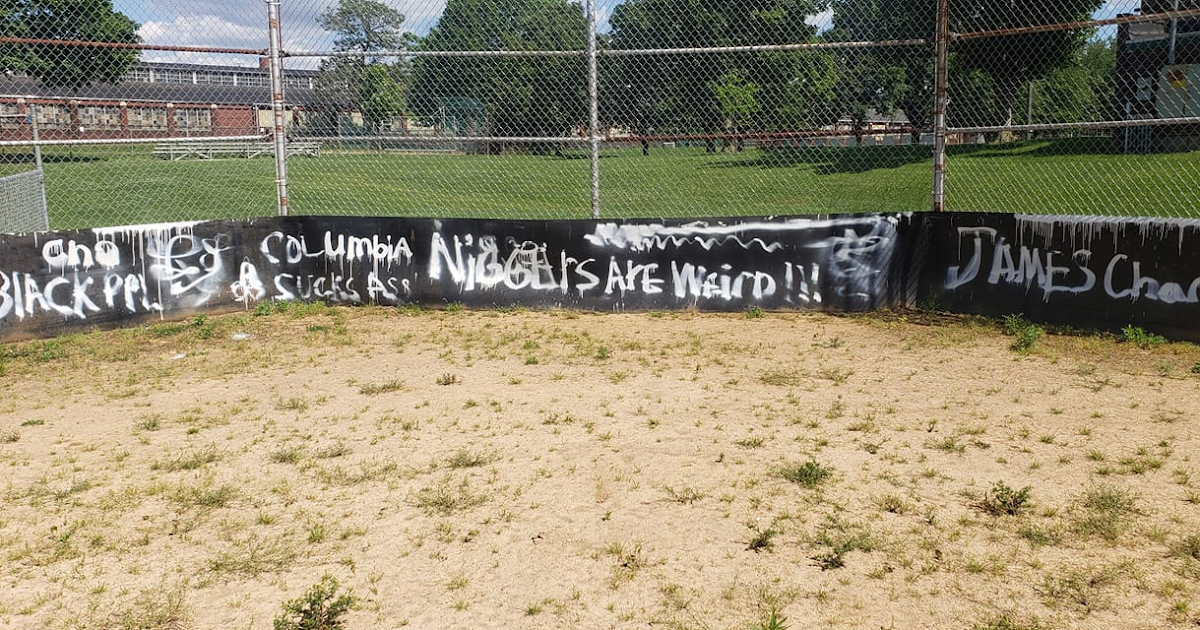 and
BlACK PPL
COLUmBIA
SUCKS ASS
NiGGErS ArE WeirD !!!
JAMES Char